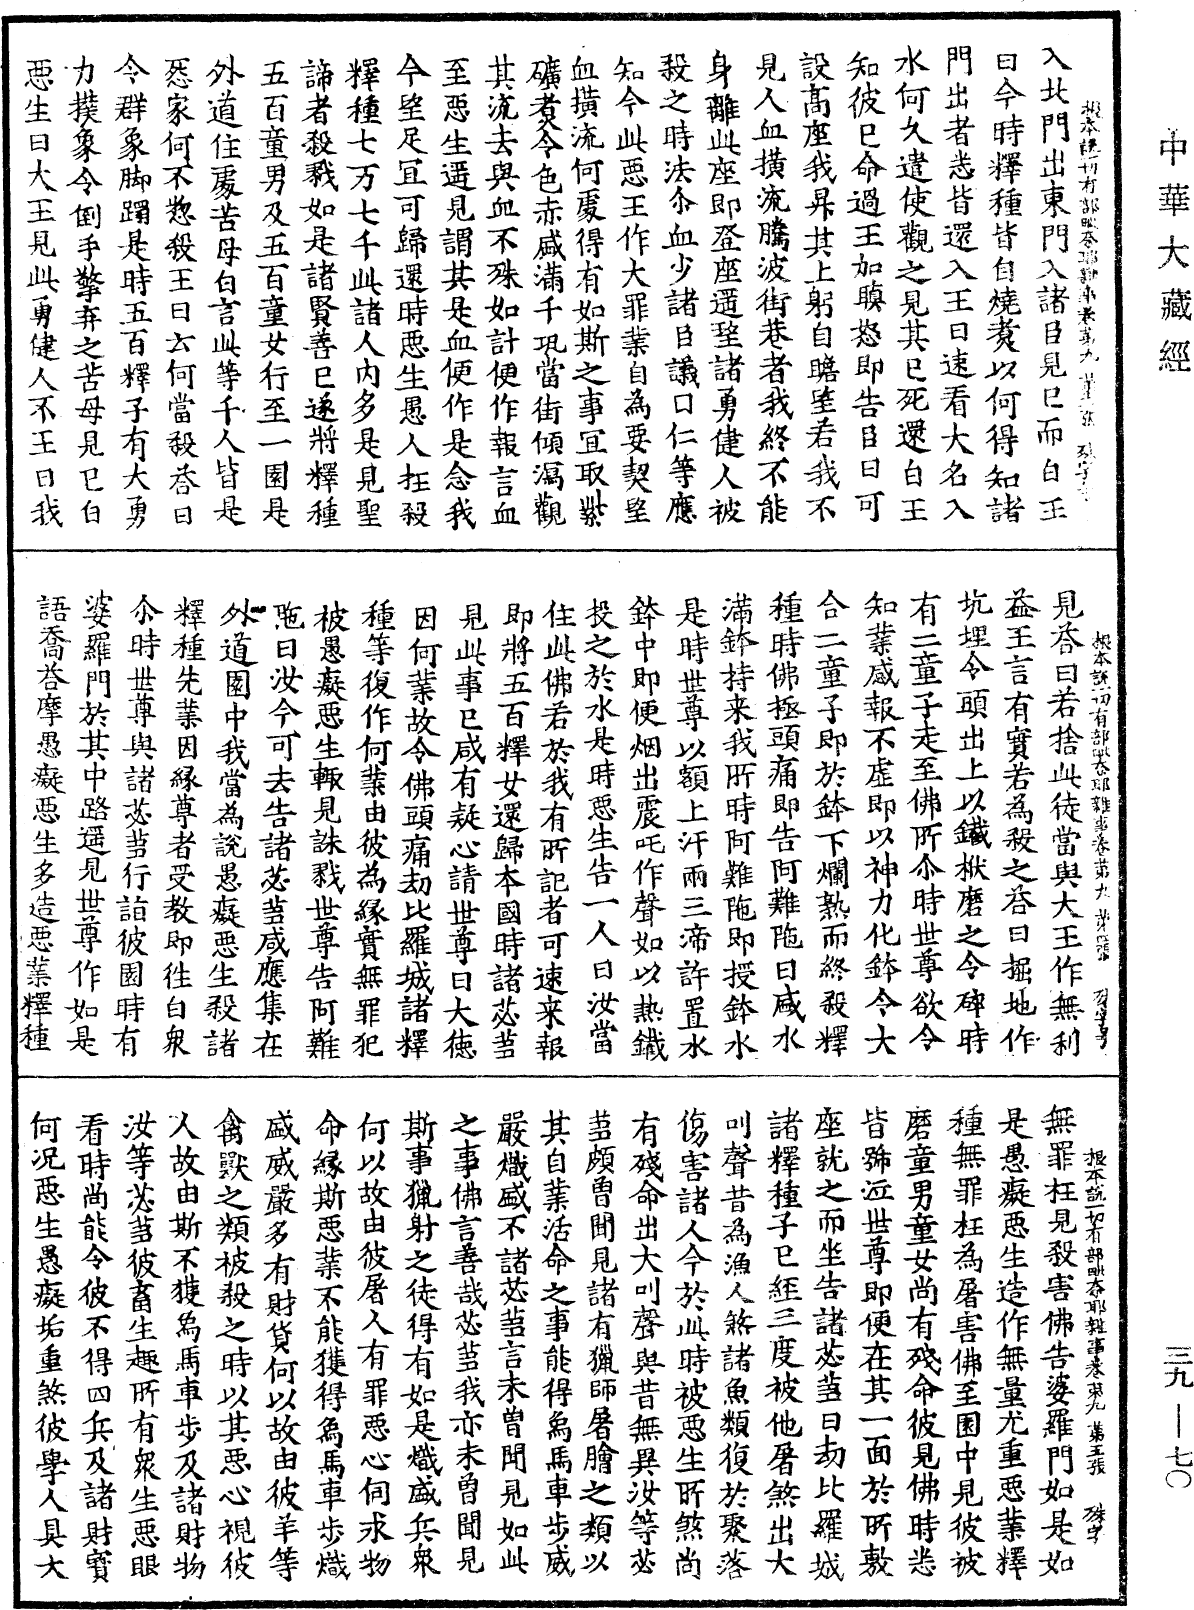 中華大藏經
三九—七〇
根本說一切有部毗奈耶雜事卷第九
入北門出東門入諸臣見已而白王
曰今時釋種皆自燒煑以何得知諸
門出者悉皆還入王曰速看大名入
水何久遣使觀之見其已死還白王
知彼已命過王加瞋怒即告臣曰可
設高座我昇其上躬自瞻望若我不
見人血撗流騰波街巷者我終不能
身離此座即登座遥望諸勇健人被
殺之時法尒血少諸臣議曰仁等應
知今此惡王作大罪業自為要契望
血撗流何處得有如斯之事宜取紫
礦煑令色赤盛滿千瓨當街傾瀉觀
其流去與血不殊如計便作報言血
至惡生遥見謂其是血便作是念我
今望足宜可歸還時惡生愚人枉殺
釋種七万七千此諸人內多是見聖
諦者殺戮如是諸賢善已遂將釋種
五百童男及五百童女行至一園是
外道住處苦母白言此等千人皆是
惌家何不惣殺王曰云何當殺荅曰
令群象脚蹋是時五百釋子有大勇
力撲象令倒手擎弃之苦母見已白
惡生曰大王見此勇健人不王曰我
根本說一切有部毗奈耶雜事卷第九 第四張
見荅曰若捨此徒當與大王作無利
益王言有實若為殺之荅曰掘地作
坑埋令頭出上以鐵杴磨之令碎時
有二童子走至佛所尒時世尊欲令
知業感報不虛即以神力化鉢令大
合二童子即於鉢下爛熟而終殺釋
種時佛極頭痛即告阿難陁曰咸水
滿鉢持来我所時阿難陁即授鉢水
是時世尊以額上汗兩三渧許置水
鉢中即便烟出震吒作聲如以熱鐵
投之於水是時惡生告一人曰汝當
住此佛若於我有所記者可速来報
即將五百釋女還歸本國時諸苾芻
見此事已咸有疑心請世尊曰大德
因何業故令佛頭痛劫比羅城諸釋
種等復作何業由彼為緣實無罪犯
被愚癡惡生輙見誅戮世尊告阿難
陁曰汝今可去告諸苾芻咸應集在
外道園中我當為說愚癡惡生殺諸
釋種先業因緣尊者受教即往白衆
尒時世尊與諸苾芻行詣彼園時有
婆羅門於其中路遥見世尊作如是
語喬荅摩愚癡惡生多造惡業釋種
根本說一切有部毗奈耶雜事卷第九 第五張
無罪枉見殺害佛告婆羅門如是如
是愚癡惡生造作無量尤重惡業釋
種無罪枉為屠害佛至園中見彼被
磨童男童女尚有殘命彼見佛時悉
皆號泣世尊即便在其一面於所敷
座就之而坐告諸苾芻曰劫比羅城
諸釋種子已經三度被他屠煞出大
叫聲昔為漁人煞諸魚類復於聚落
傷害諸人今於此時被惡生所煞尚
有殘命出大叫聲與昔無異汝等苾
芻頗曽聞見諸有獵師屠膾之類以
其自業活命之事能得爲馬車步威
嚴熾盛不諸苾芻言未曽聞見如此
之事佛言善哉苾芻我亦未曽聞見
斯事獵射之徒得有如是熾盛兵衆
何以故由彼屠人有罪惡心伺求物
命緣斯惡業不能獲得爲馬車步熾
盛威嚴多有財貨何以故由彼羊等
禽獸之類被殺之時以其惡心視彼
人故由斯不獲爲馬車步及諸財物
汝等苾芻彼畜生趣所有衆生惡眼
看時尚能令彼不得四兵及諸財寳
何况惡生愚癡垢重煞彼學人具大